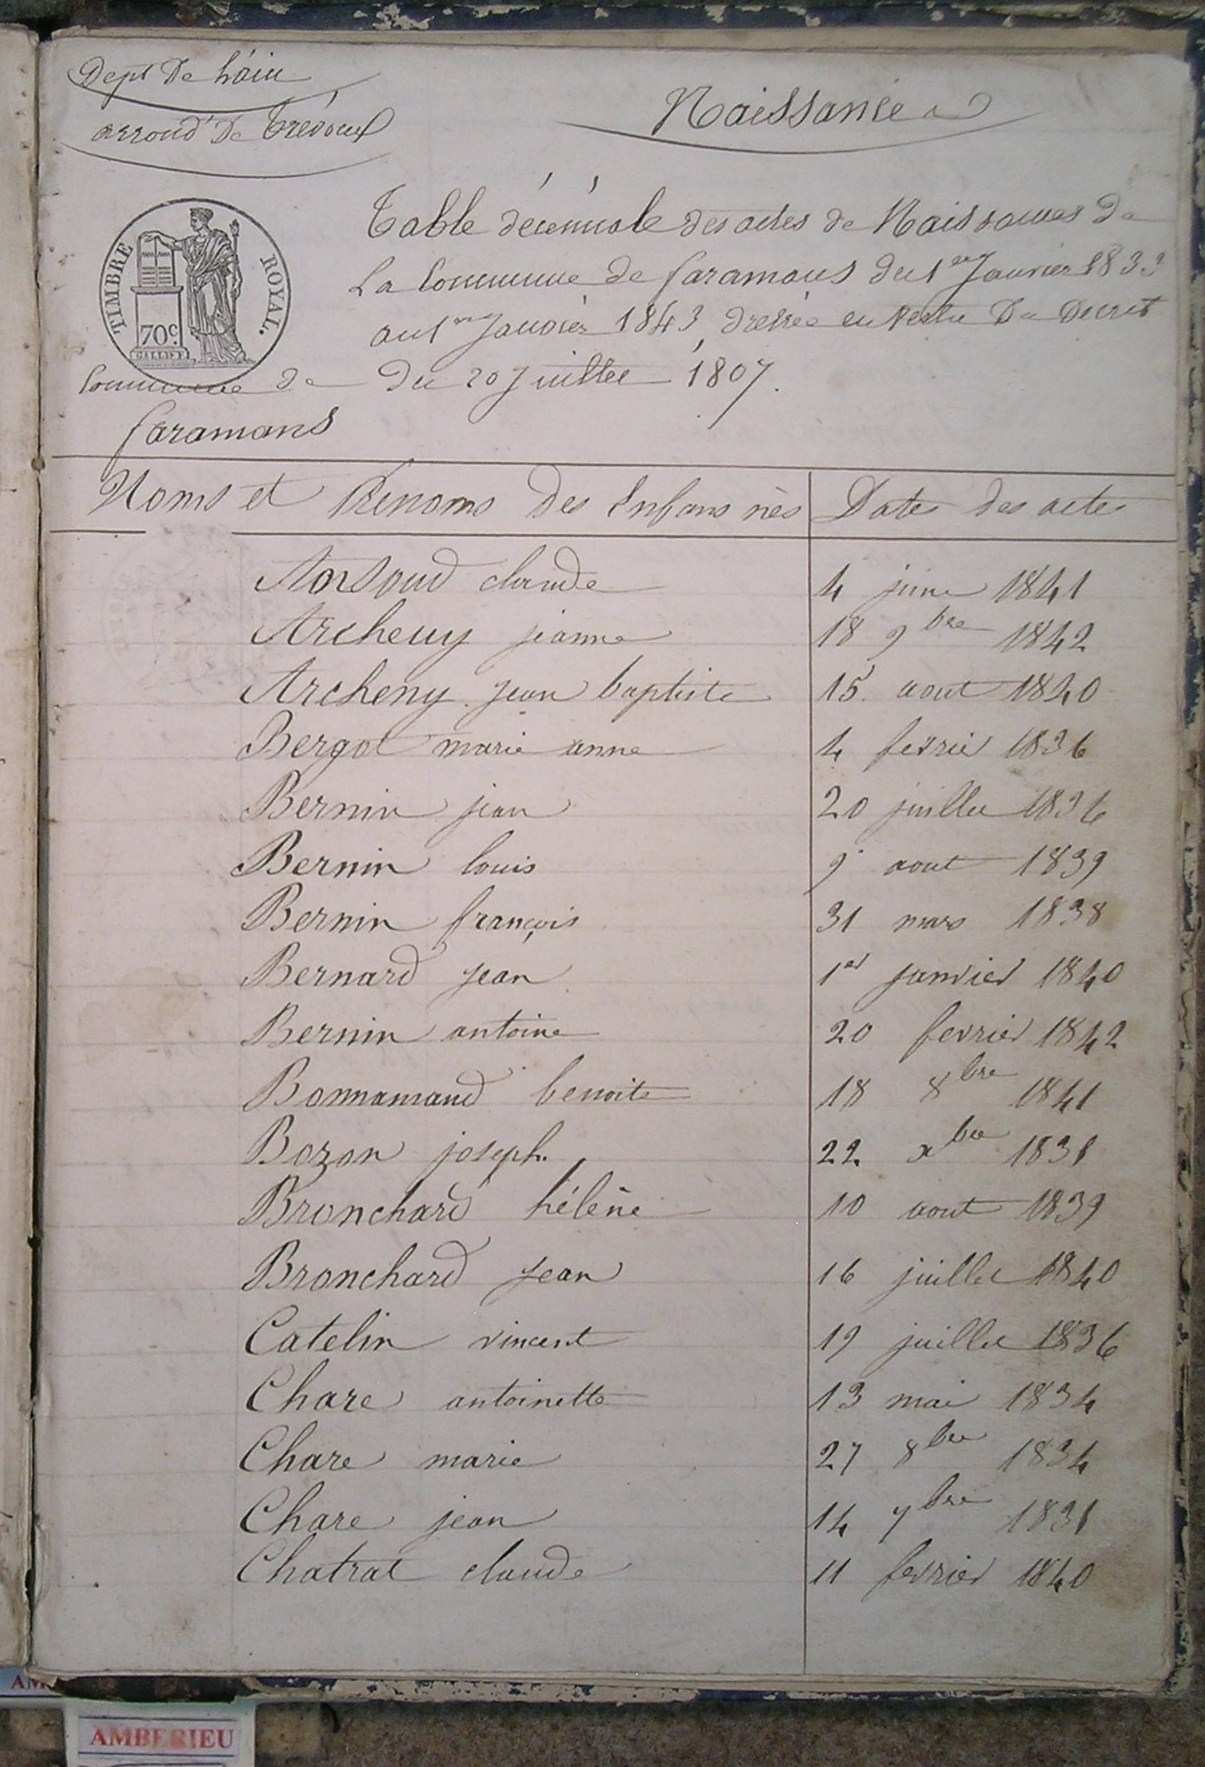 Dept De l'ain
arrond' De trévoux
Naissances
TIMBRE ROYAL.
70c.
Table décennale des actes de Naissances De
La Commune de faramans du 1er Janvier 1833
au 1er Janvier 1843, dressée en vertu Du Decret
Du 20 Juillet 1807.
Commune De
faramans
Noms et Prénoms Des Enfans nés Dates des actes
claude 4 juin 1841
Archeny jeanne 18 9bre 1842
Archeny jean baptiste 15 aout 1840
Bergot marie anne 4 fevrier 1836
Bernin jean 20 juillet 1836
Bernin louis 9 aout 1839
Bernin françois 31 mars 1838
Bernard jean 1er janvier 1840
Bernin antoine 20 fevrier 1842
Bonnamand benoite 18 8bre 1841
Bozon joseph. 22 xbre
Bronchard hélène 10 aout 1839
Bronchard jean 16 juillet 1840
Catelin vincent 19 juillet 1836
Chare antoinette 13 mai 1834
Chare marie 27 8bre 1834
Chare jean 14 7bre
Chatrat claude 11 fevrier 1840
AMBERIEU